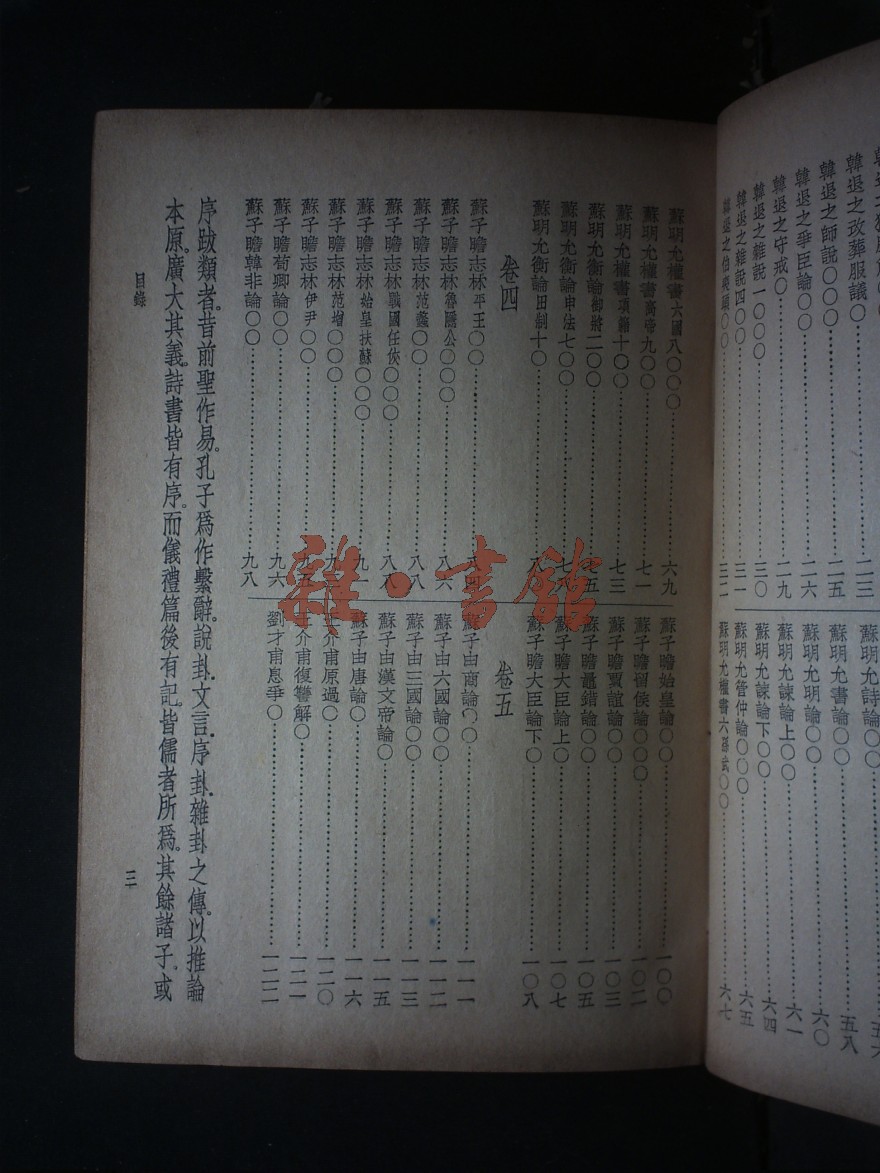 韓退之改葬服議〇……二三
韓退之師說〇〇〇……二五
韓退之爭臣論〇〇……二六
韓退之守戒〇……二九
韓退之雜說一〇〇〇……三〇
韓退之雜說四〇〇……三一
韓退之伯夷頌〇〇……三二
蘇明允詩論〇〇……五六
蘇明允書論〇……五八
蘇明允明論〇……六〇
蘇明允諫論上〇〇……六一
蘇明允諫論下〇〇……六四
蘇明允管仲論〇〇〇……六五
蘇明允權書六孫武〇〇……六七
蘇明允權書六國八〇〇〇……六九
蘇明允權書高帝九〇〇……七一
蘇明允權書項籍十〇〇……七三
蘇明允衡論御將二〇〇……七五
蘇明允衡論申法七〇〇……
蘇明允衡論田制十〇……
卷四
蘇子瞻志林平王〇〇……
蘇子瞻志林魯隱公〇〇〇……八六
蘇子瞻志林范蠡〇〇……八八
蘇子瞻志林戰國任俠〇〇〇……
蘇子瞻志林始皇扶蘇〇〇〇……九一
蘇子瞻志林范增〇〇〇……
蘇子瞻志林伊尹〇〇……
蘇子瞻荀卿論〇〇……九六
蘇子瞻韓非論〇〇……九八
蘇子瞻始皇論〇〇……一〇〇
蘇子瞻留侯論〇〇〇……一〇二
蘇子瞻賈誼論〇〇……一〇三
蘇子瞻鼂錯論〇〇……一〇五
蘇子瞻大臣論上〇……一〇七
蘇子瞻大臣論下〇……一〇八
卷五
蘇子由商論〇〇……一一一
蘇子由六國論〇〇……一一二
蘇子由三國論〇〇……一一三
蘇子由漢文帝論〇……一一五
蘇子由唐論〇……一一六
王介甫原過〇……一二〇
王介甫復讐解〇……一二一
劉才甫息爭〇……一二二
序跋類者。昔前聖作易。孔子為作繫辭、說卦、文言、序卦、雜卦之傳。以推論
本原。廣大其義。詩書皆有序。而儀禮篇後有記。皆儒者所為。其餘諸子。或
目錄
三
雜·書館